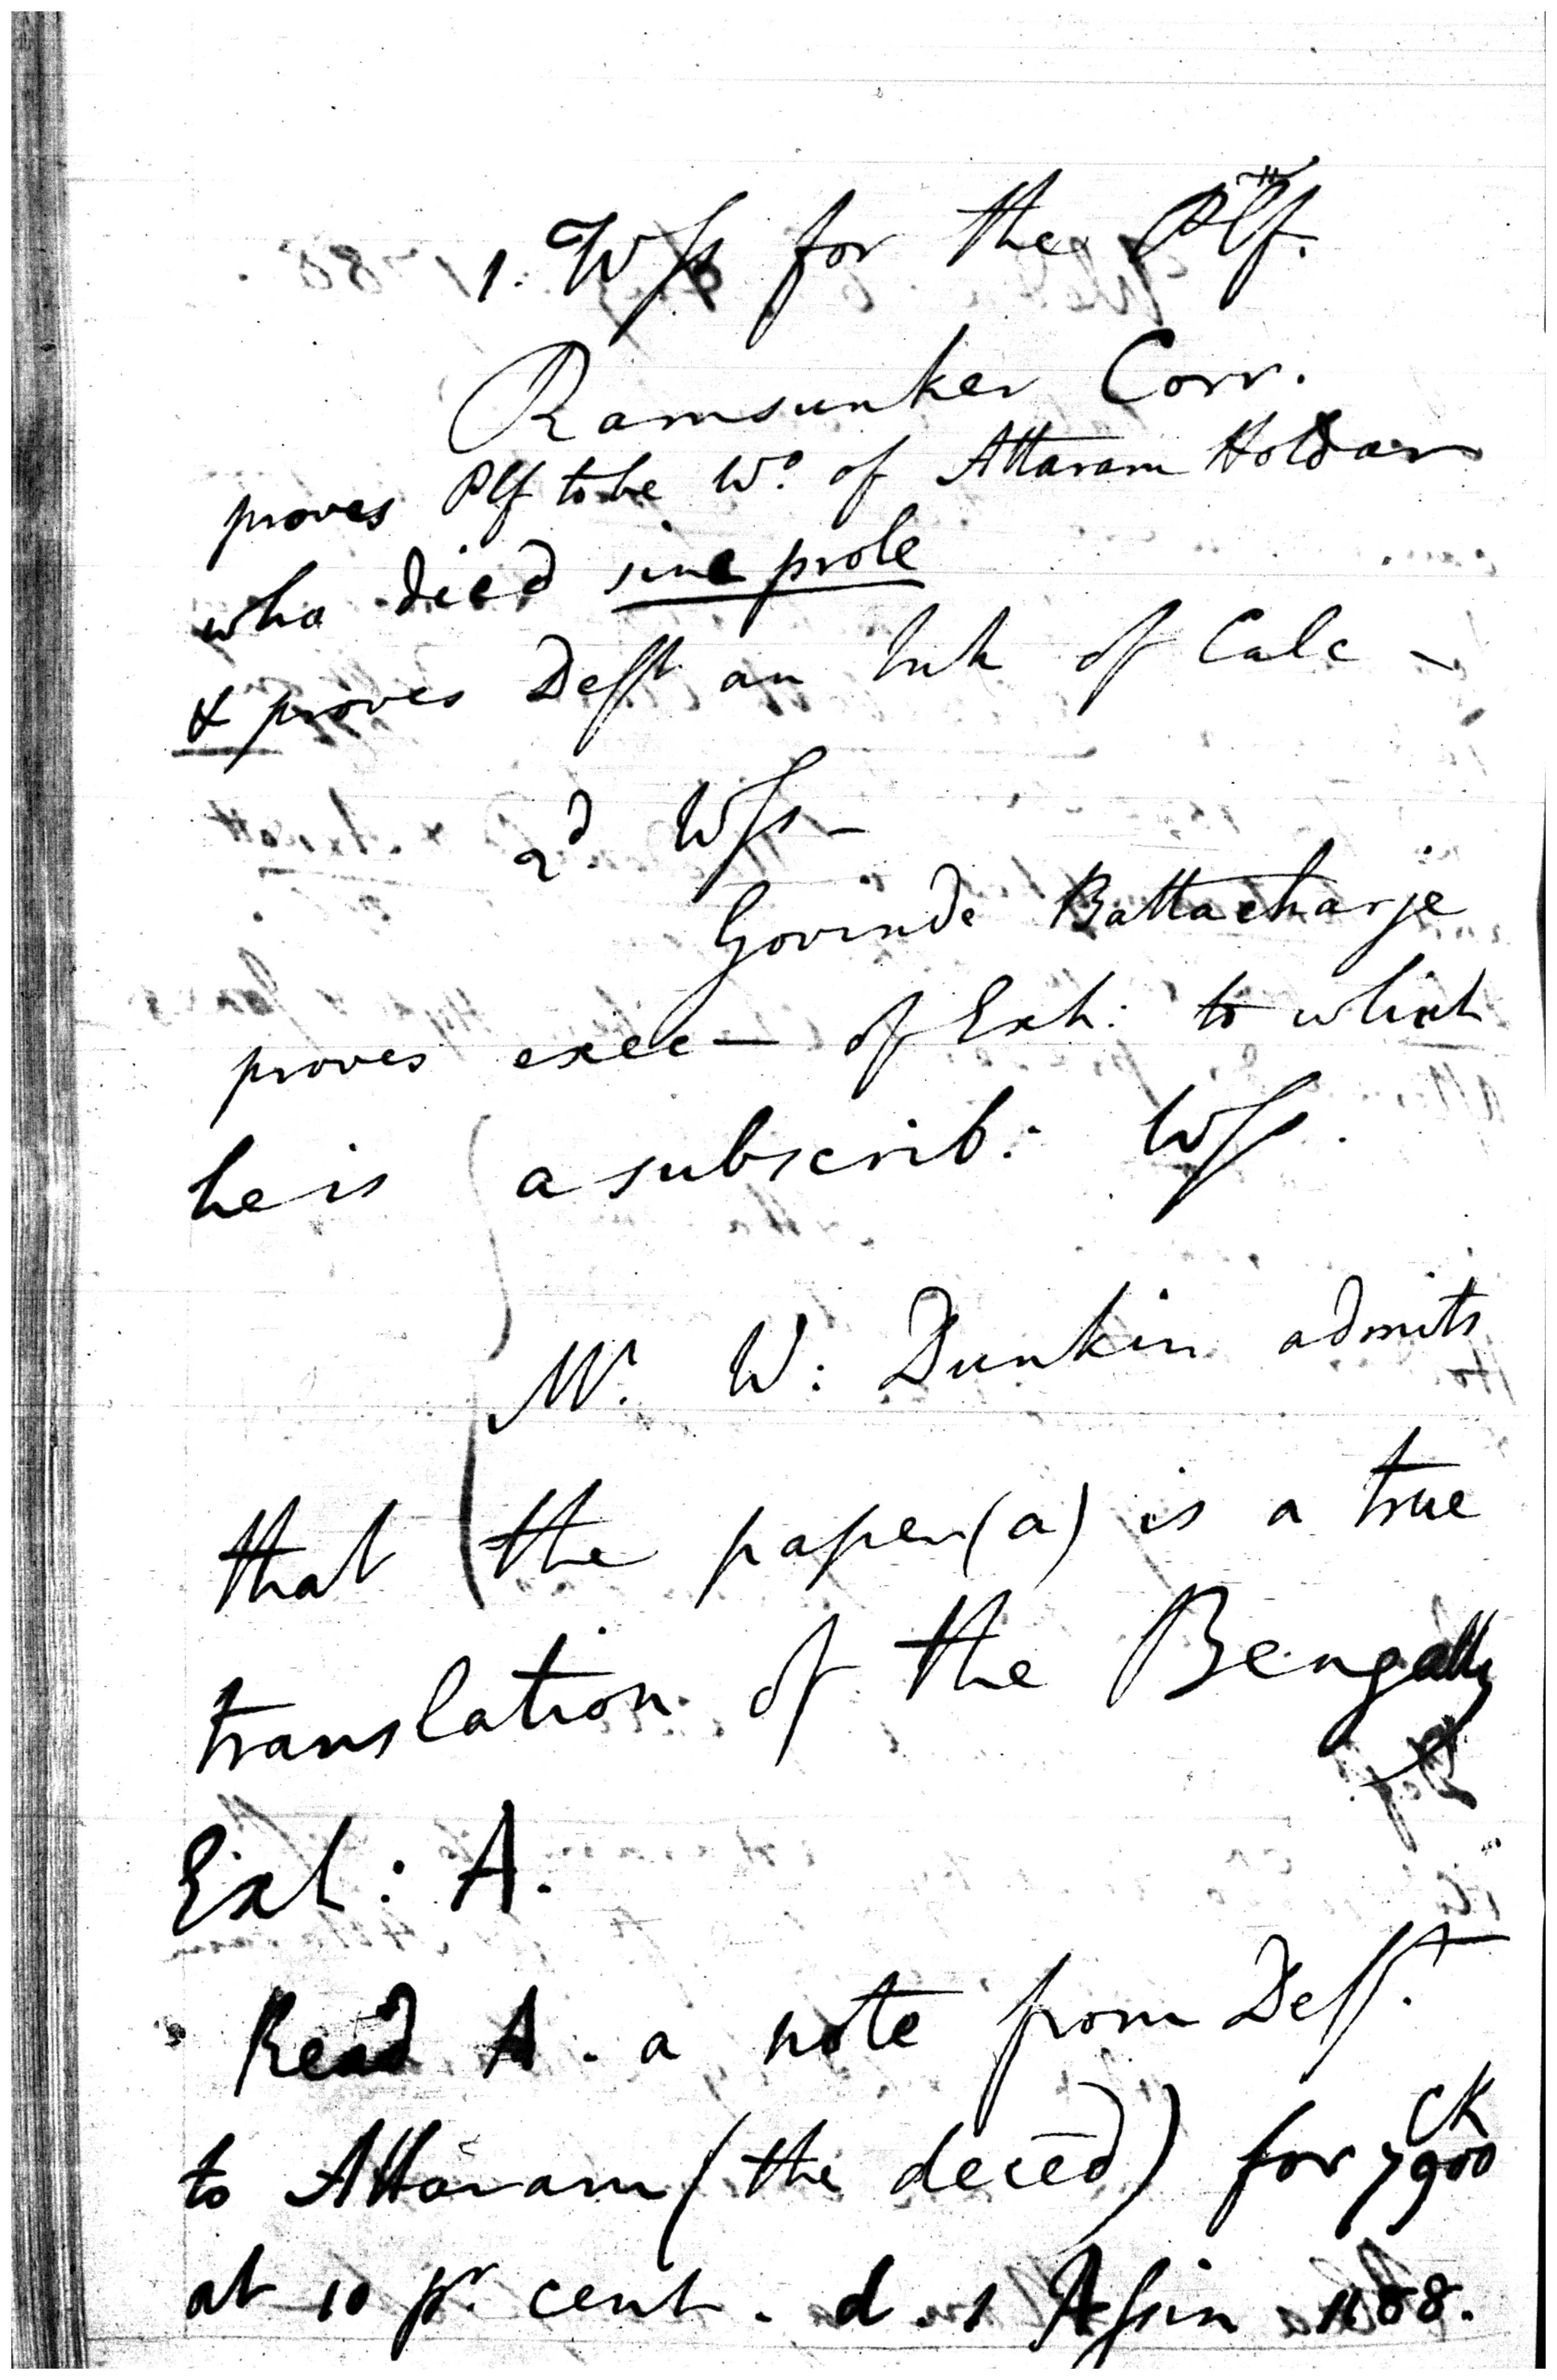 1. Wss for the Plf.
Ramsunker Corr.
proves Plf to be Wo. of Attaram Holdar
who died sine prole
& proves Deft an Inh of Calc –
2d Wss –
Govinde Battacharje
proves exec – of Exh: to which
he is a subscrib: Wss.
Mr. W: Dunkin admits
that the paper (a) is a true
translation of the Bengally
Exh: A.
Read A. a note from Deft.
to Attaram (the deced) for CK 7900
at 10 pr. cent. d. 1 Assin 1188.